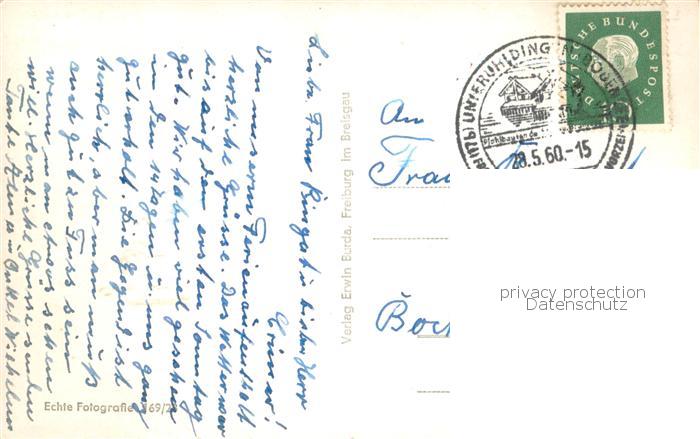 Liebe Frau Ringat u. lieber Herr
Cöner!
Von unserem Ferienaufenthalt
herzliche Grüsse. Das Wetter war
bis auf den ersten Sonntag
gut. Wir haben viel gesehen
in den 14 Tagen u. uns ganz
gut erholt. Die Gegend ist
herrlich, aber man muß
auch gut zu Fuss sein
wenn man etwas sehen
will. Herzliche Grüsse senden
Tante u. Onkel Wilhelm
Echte Fotografie 169/2
Verlag Erwin Burda, Freiburg im Breisgau
An
Frau
Boc
DEUTSCHE BUNDESPOST
10
(17b) UNTERUHLDINGEN
Pfahlbauten
28.5.60.-15
privacy protection
Datenschutz